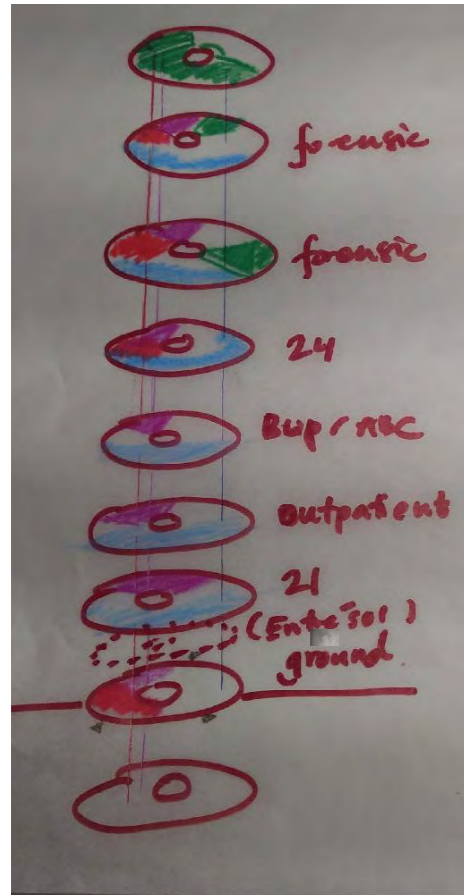 forensic
forensic
24
Outpatient
21
(Entresol)
ground